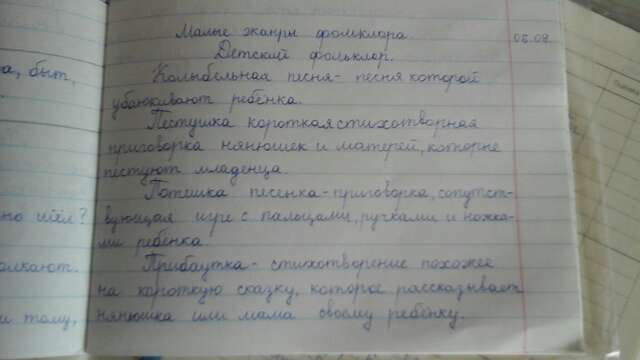 Малые жанры фольклора.
05.09.
Детский фольклор.
Колыбельная песня - песня которой
убаюкивают ребёнка.
Пестушка короткая стихотворная
приговорка нянюшек и матерей, которые
пестуют младенца.
Потешка песенка-приговорка, сопутст-
вующая игре с пальцами, ручками и ножка-
ми ребёнка.
Прибаутка - стихотворение похожее
на короткую сказку, которое рассказывает
нянюшка или мама своему ребёнку.
быт,
но шёл?
олкают.
и тому,